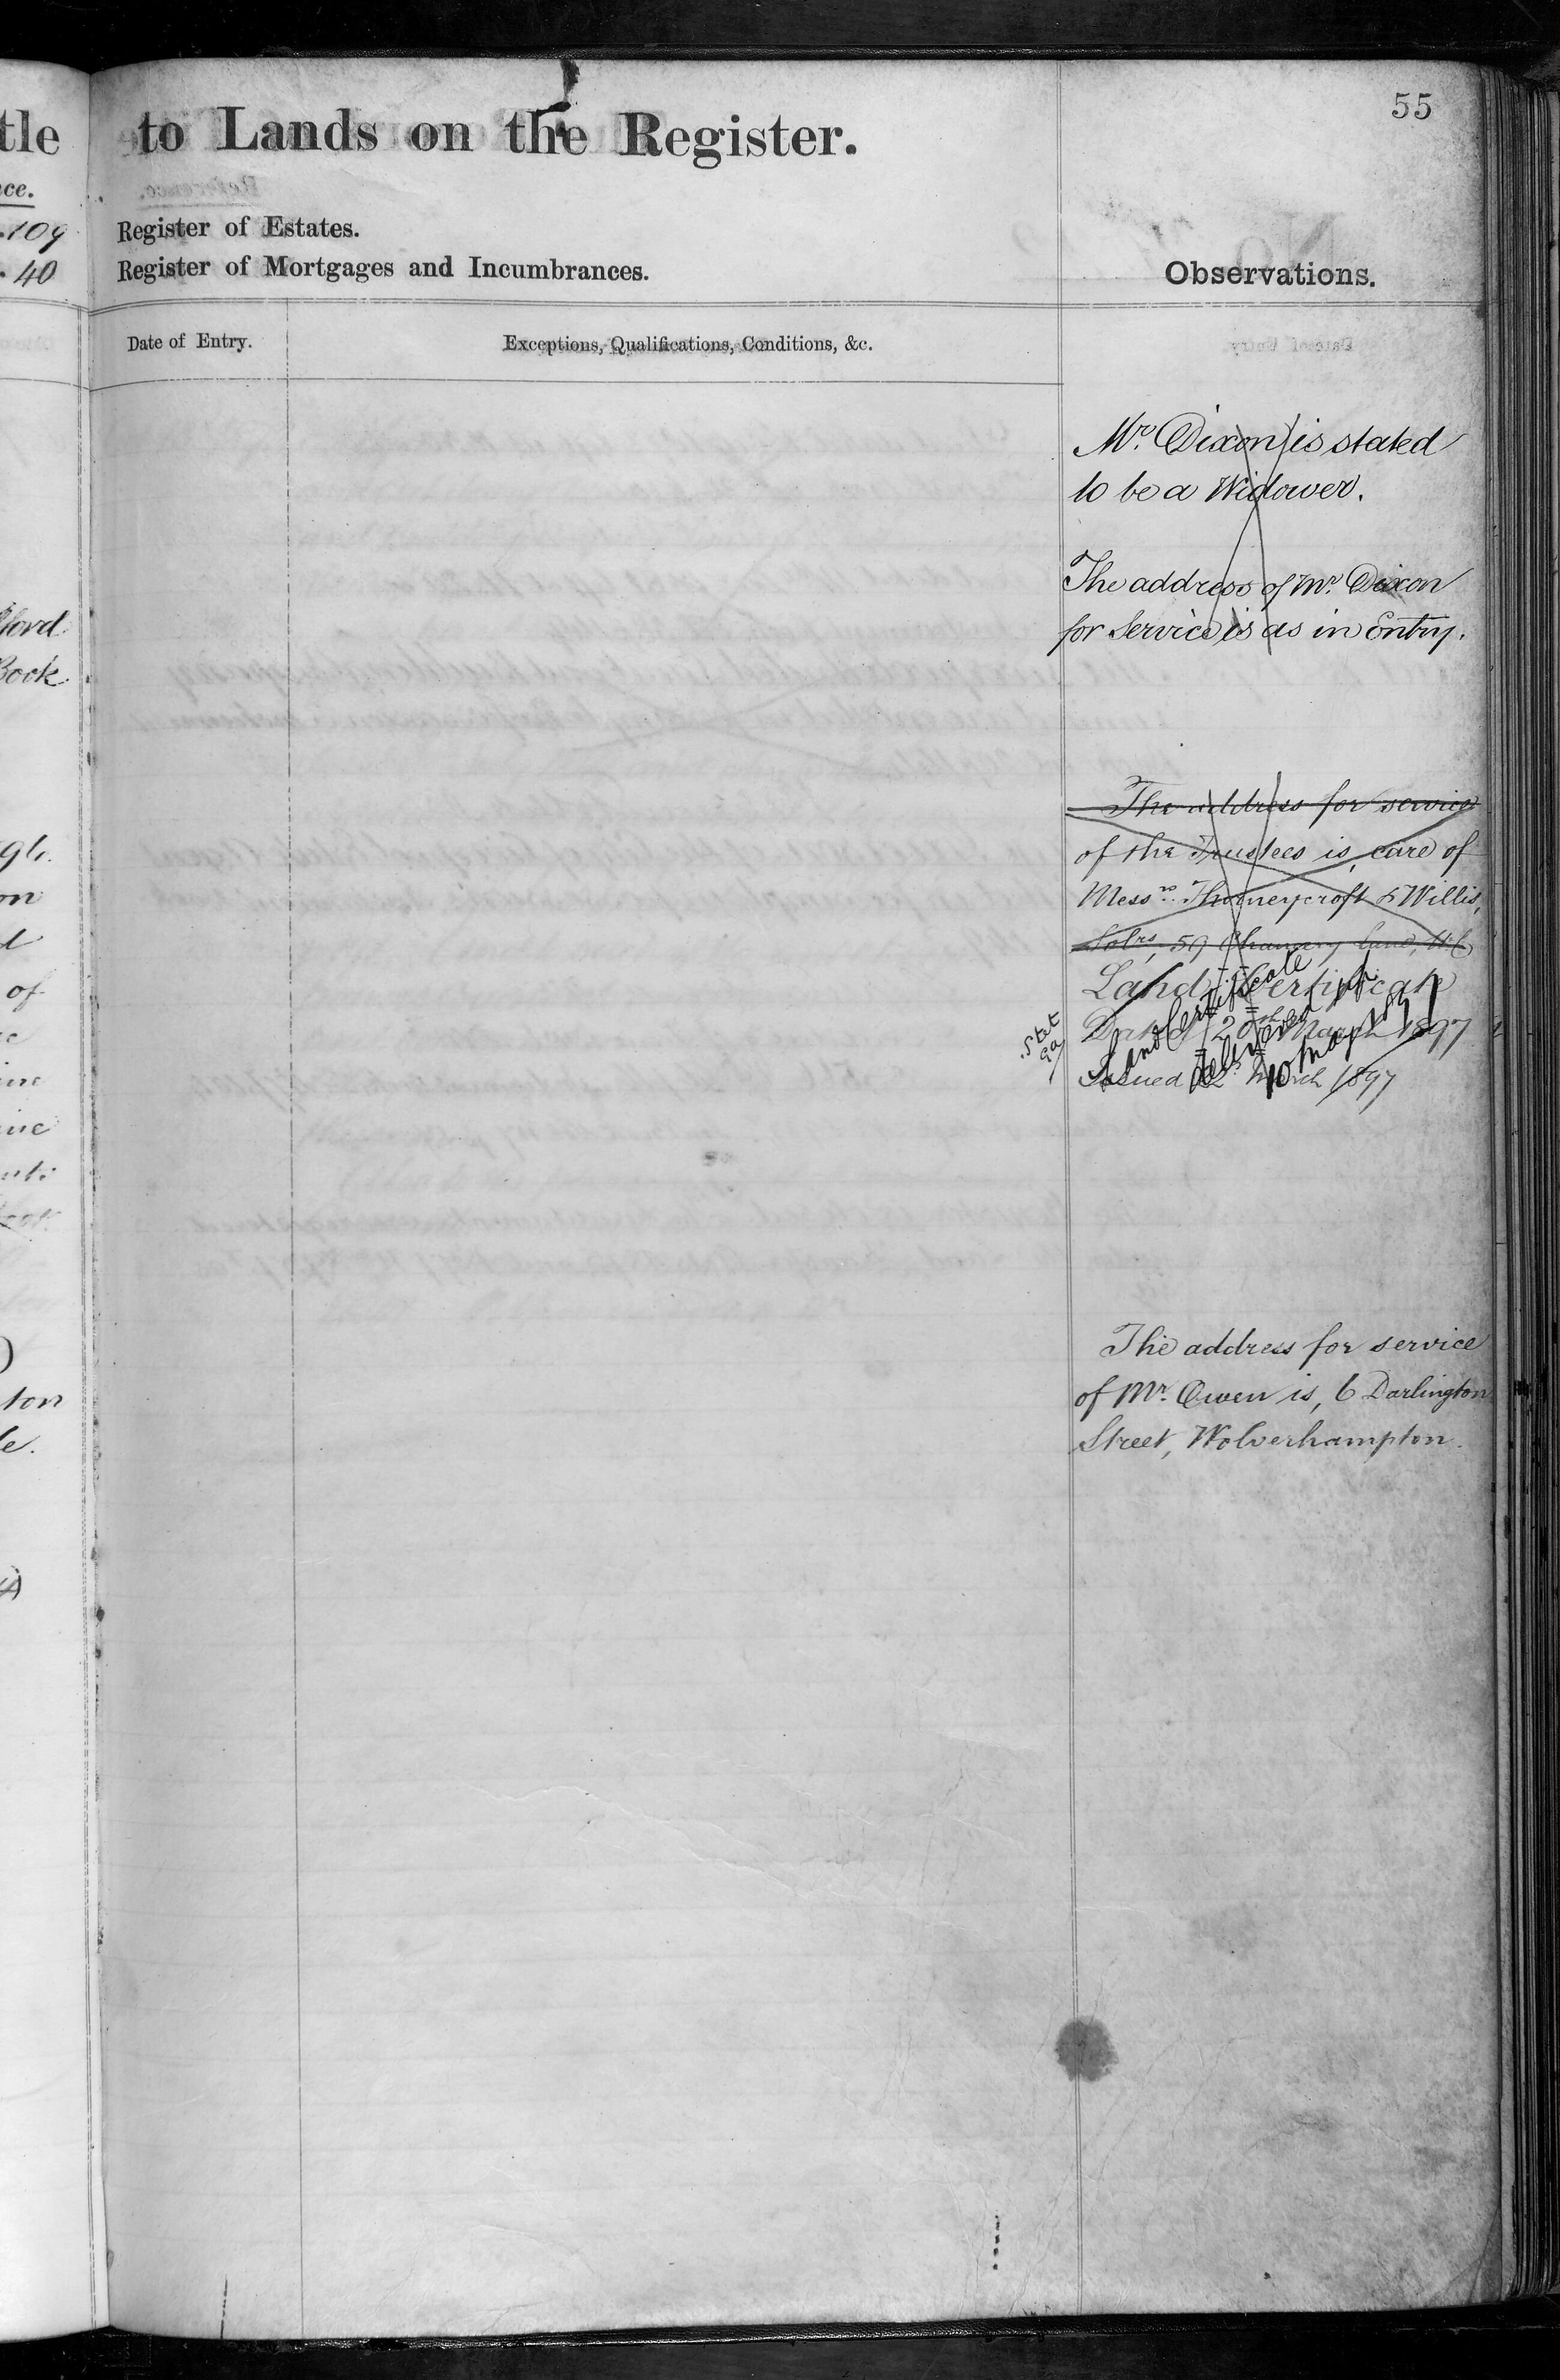 55
tle to Lands on the Register.
ce.
109 Register of Estates.
40 Register of Mortgages and Incumbrances.
Observations.
Date of Entry. Exceptions, Qualifications, Conditions, &c.
Mr. Dixon is stated
to be a Widower.
The address of Mr. Dixon
for Service is as in Entry.
ford
Book
The address for service
of the Trustees is, care of
Messrs. Thorneycroft & Willis,
Solrs, 59 Chancery Lane, W.C
Land Certificate
Dated 20th March 1897
Issued 22 March 1897
Stet
Land Certificate
delivered up
10 May
on
of
The address for service
of Mr. Owen is, 6 Darlington
Street, Wolverhampton.
ton
le.